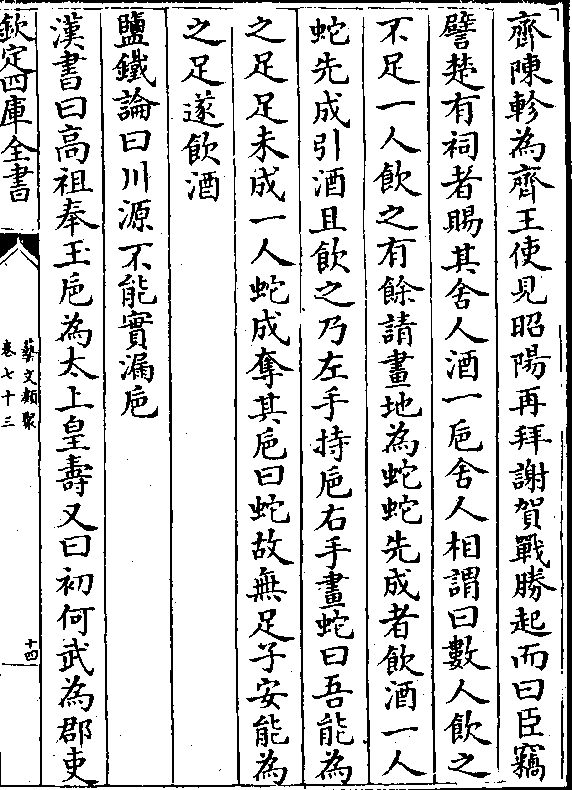 齊陳軫為齊王使見昭陽再拜謝賀戰勝起而曰臣竊
譬楚有祠者賜其舍人酒一巵舍人相謂曰數人飲之
不足一人飲之有餘請畫地為蛇蛇先成者飲酒一人
蛇先成引酒且飲之乃左手持巵右手畫蛇曰吾能為
之足足未成一人蛇成奪其巵曰蛇故無足子安能為
之足遂飲酒
鹽鐵論曰川源不能實漏巵
漢書曰高祖奉玉巵為太上皇壽又曰初何武為郡吏
欽定四庫全書
藝文類聚
卷七十三
十四